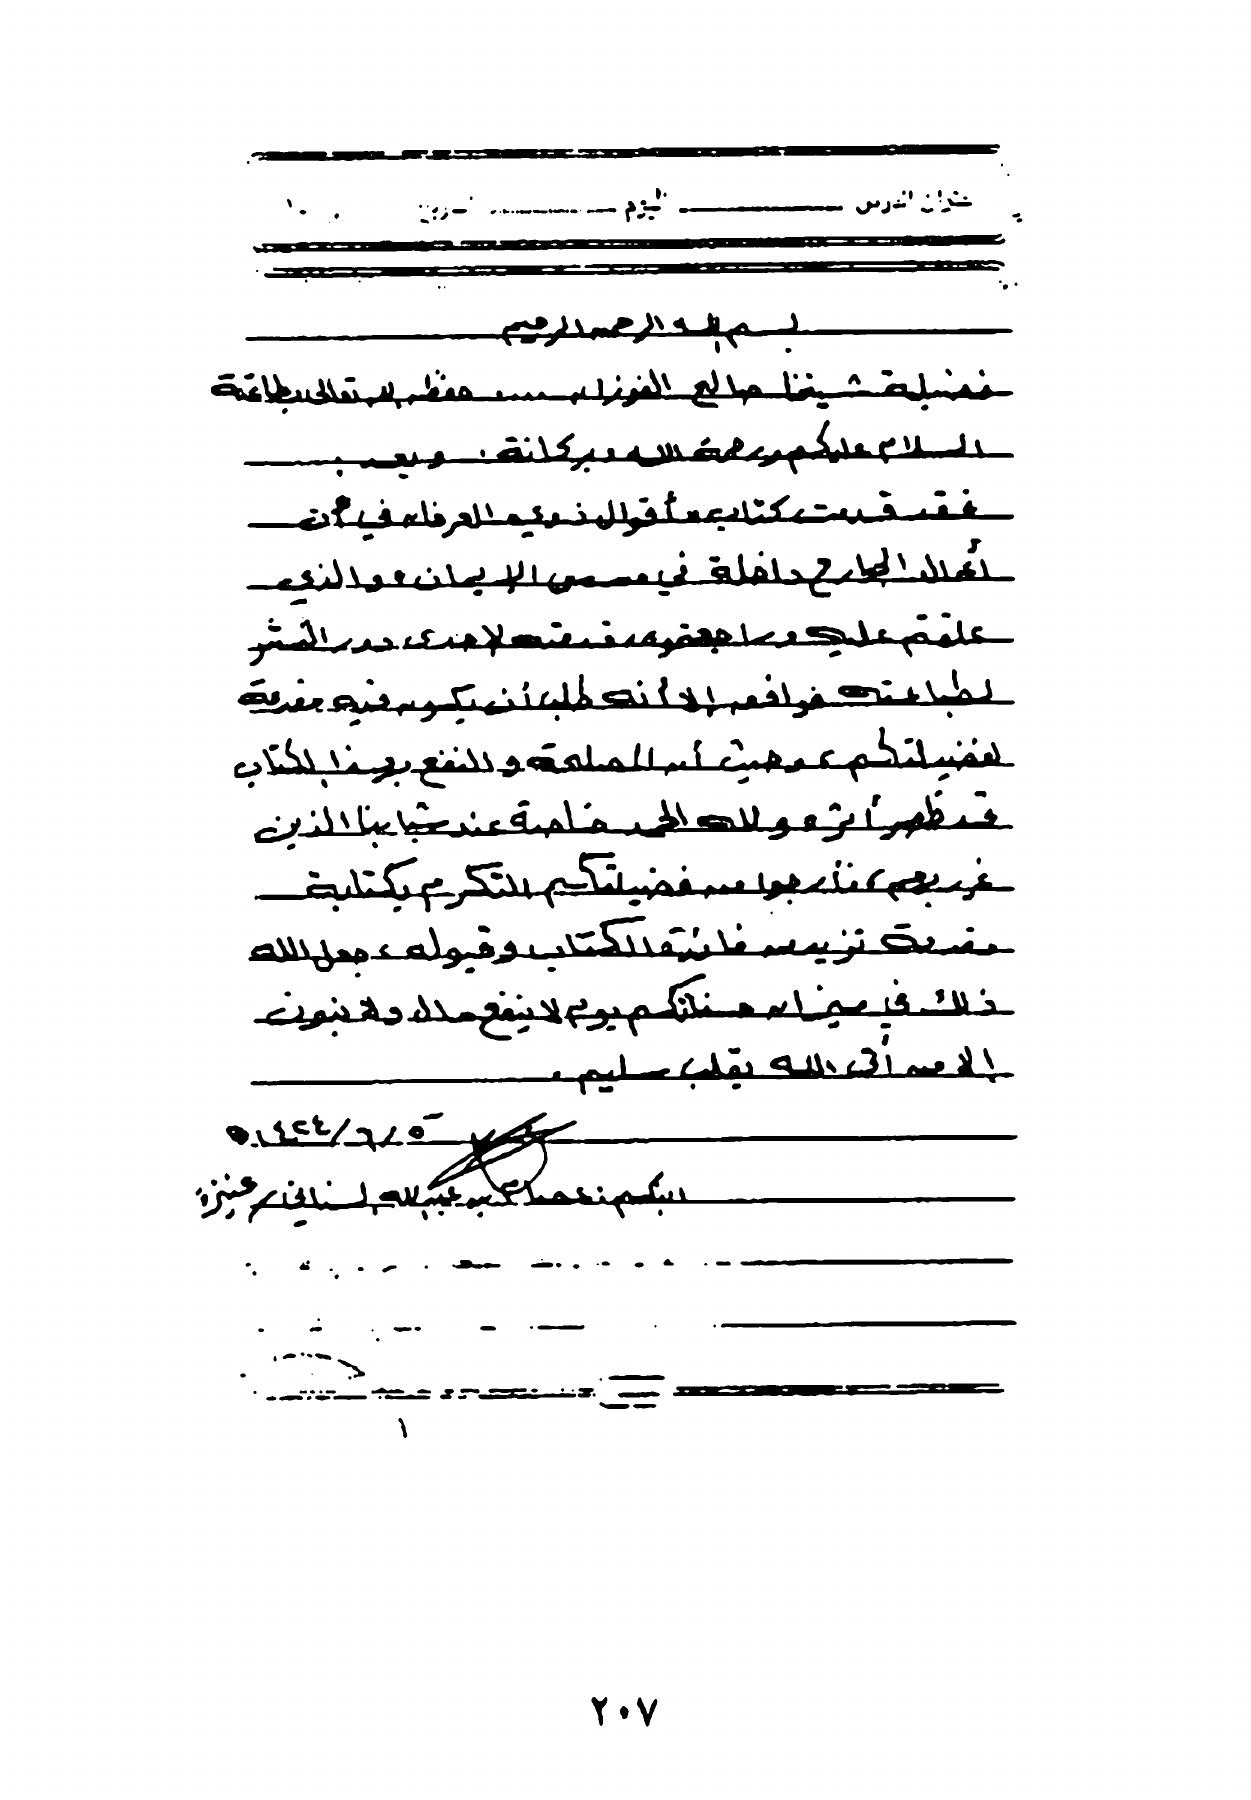 عنوان الدرس اليوم
بسم الله الرحمن الرحيم
فضيلة شيخنا صالح الفوزان ..... حفظه الله تعالى بطاعته
السلام عليكم ورحمة الله وبركاته، وبعد:
فقد قدمت كتاب أقوال ذوي العرفان في أن
أعمال الجوارح داخلة في مسمى الإيمان، والذي
علقتم عليه وراجعتموه، قدمته لإحدى دور النشر
لطباعته فوافق إلا أنه طلب أن يكون فيه مقدمة
لفضيلتكم، وحيث أن المصلحة والنفع بهذا الكتاب
قد ظهر أثره ولله الحمد خاصة عند شبابنا الذين
غرر بهم، فأرجوا من فضيلتكم التكرم بكتابة
مقدمة تزيد من فائدة الكتاب وقبوله، جعل الله
ذلك في ميزان حسناتكم يوم لا ينفع مال ولا بنون
إلا من أتى الله بقلب سليم.
٥/٦/١٤٢٤هـ
ابنكم: عصام بن عبدالله السناني / عنيزة
١
٢٠٧